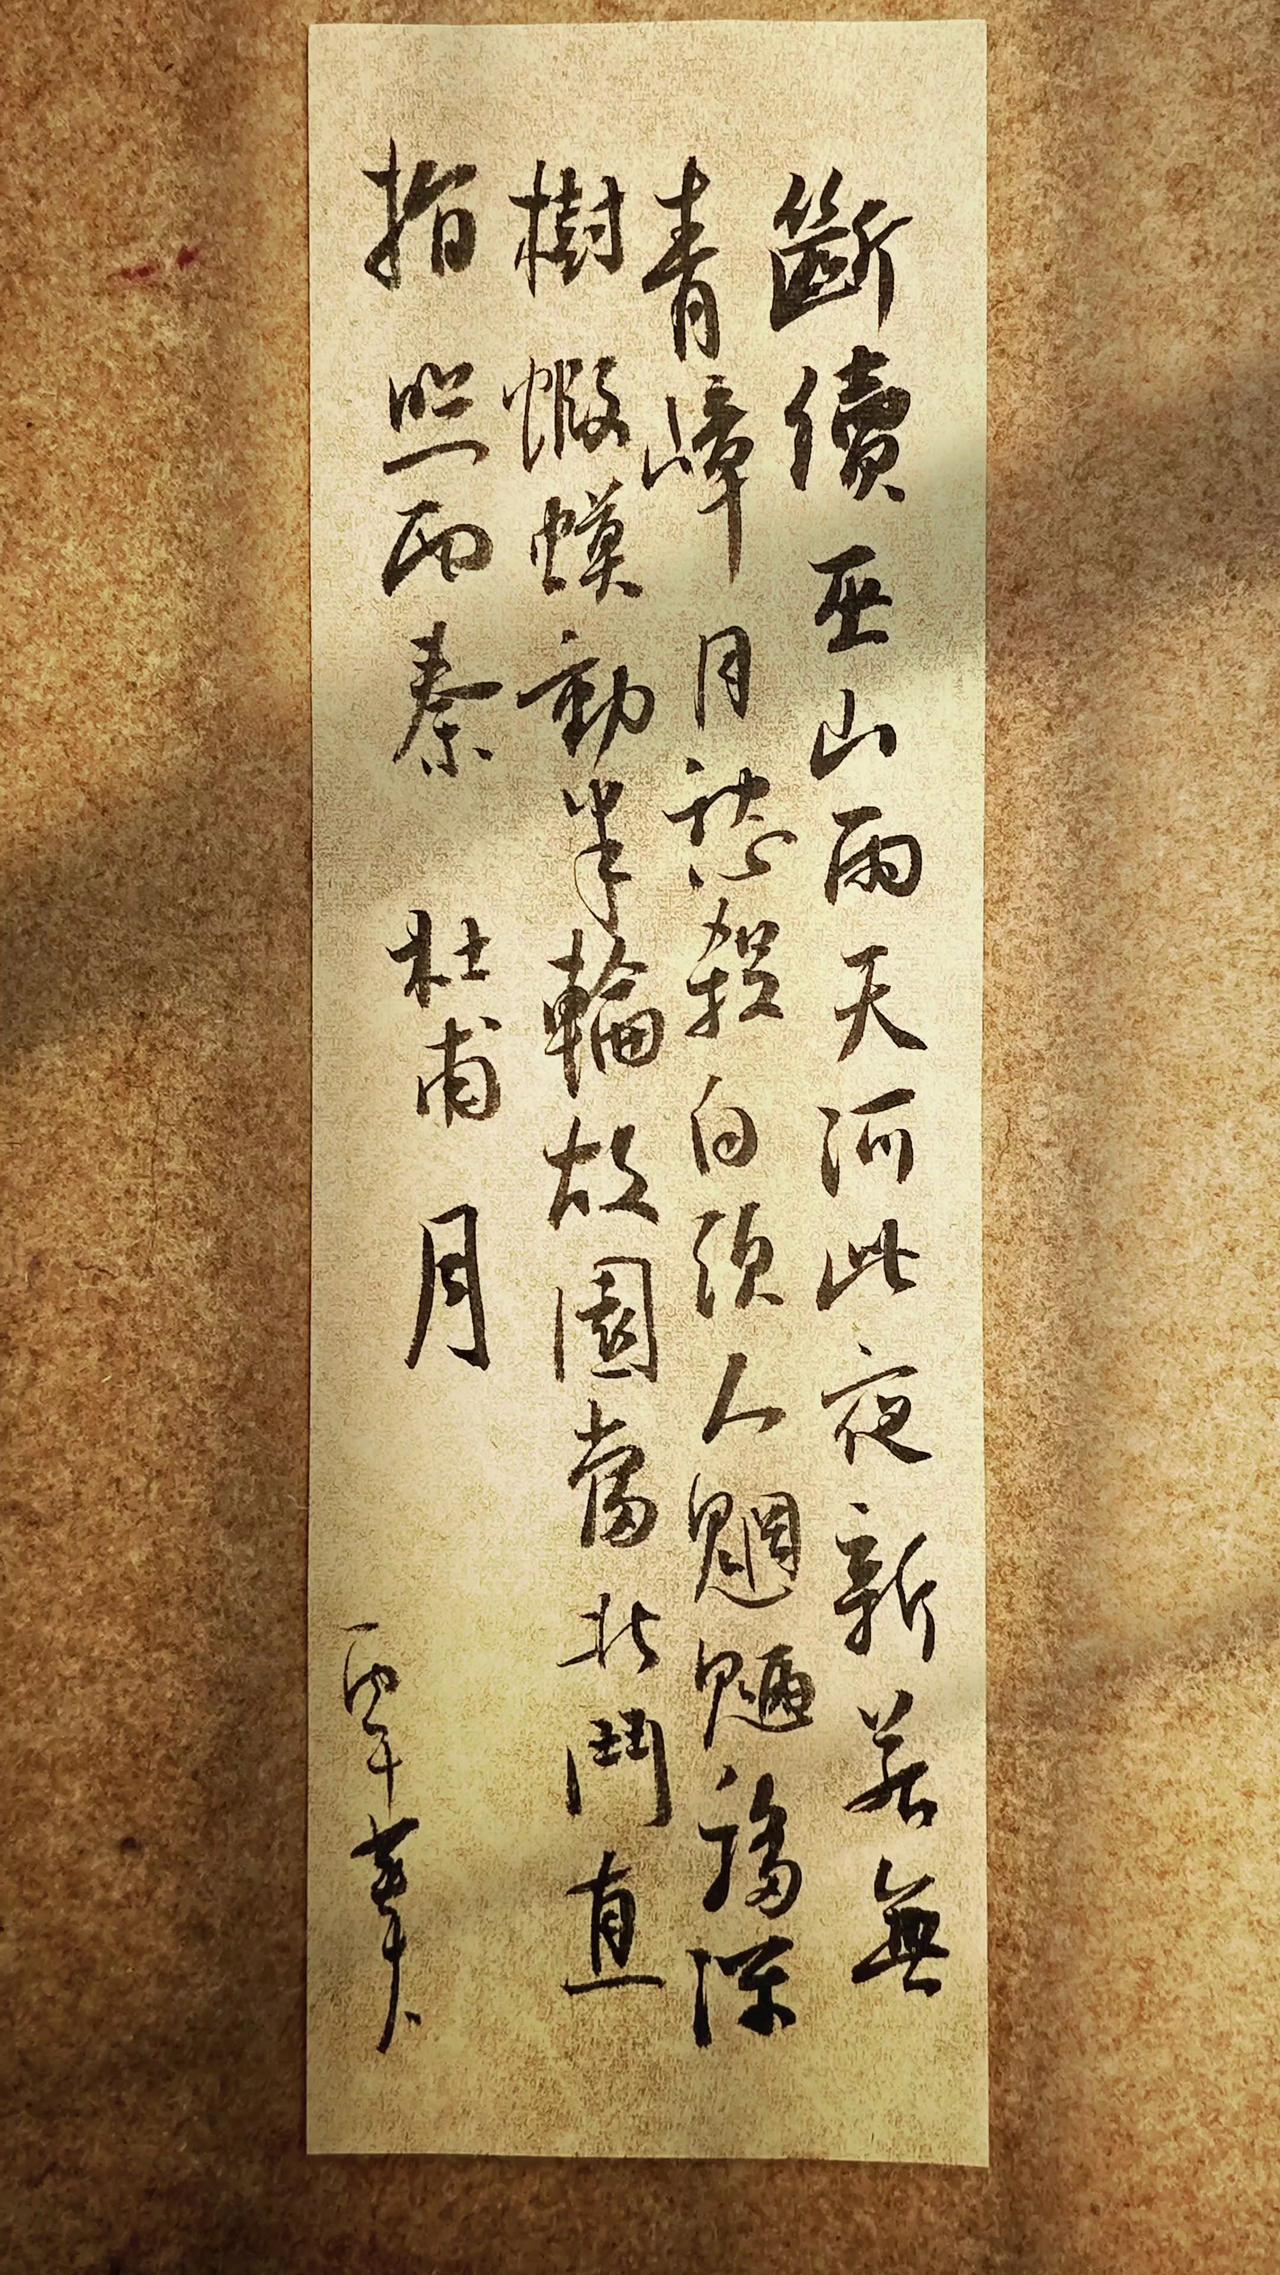 斷續巫山雨天河此夜新若無
青嶂月愁殺白頭人魍魎移深
樹蝦蟆動半輪故園當北鬥直
指照西秦 杜甫 月
丙午